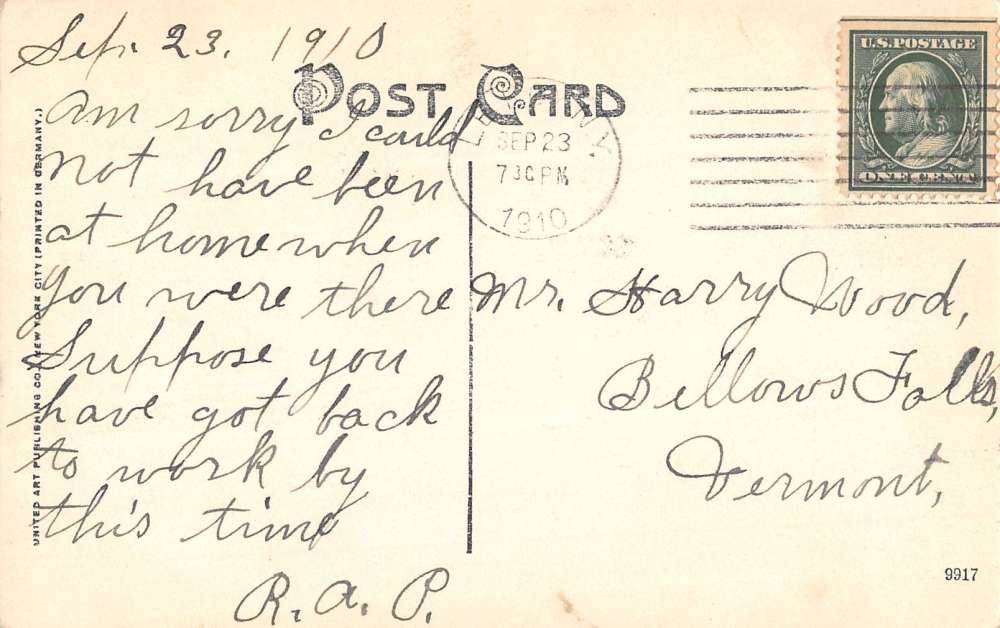 Sep. 23. 1910
POST CARD
U.S. POSTAGE
ONE CENT
SEP 23
7 30 PM
1910
N.Y.
am sorry I could
not have been
at home when
you were there
Suppose you
have got back
to work by
this time
R. a. P.
Mr. Harry Wood,
Bellows Falls,
Vermont,
UNITED ART PUBLISHING CO., NEW YORK CITY (PRINTED IN GERMANY.)
9917